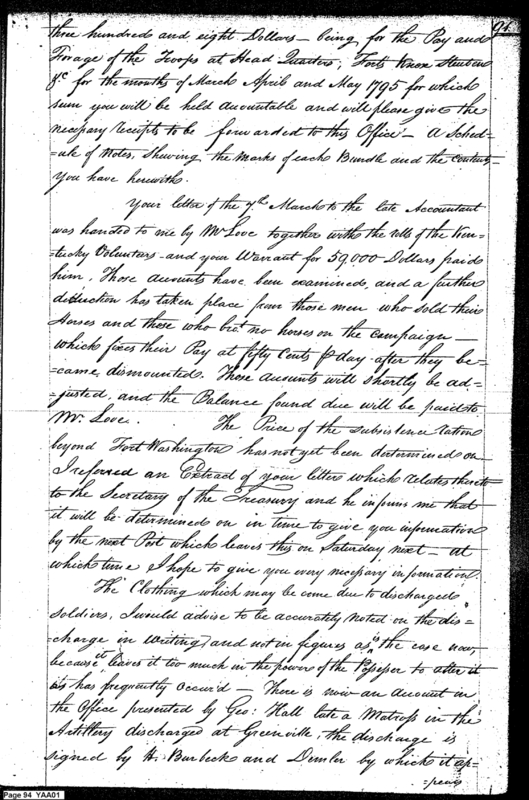 94.
three hundred and eight Dollars — being for the Pay and
Forage of the Troops at Head Quarters, Forts Knox Steuben
&c for the months of March April and May 1795 for which
sum you will be held accountable and will please give the
necessary receipts to be forwarded to this Office — A Sched-
=ule of Notes, Shewing the marks of each Bundle and the contents
you have herewith.
Your letter of the 7th March to the late Accountant
was handed to me by Mr Love together with the rolls of the Ken-
=tucky Voluntars and your Warrant for 59,000 Dollars paid
him. Those accounts have been examined, and a further
deduction has taken place from those men who sold their
Horses and those who bro't no horses on the campaign —
which fixes their Pay at fifty Cents p day after they be-
=came dismounted. Those accounts will shortly be ad-
=justed, and the Balance found due will be paid to
Mr Love. The Price of the subsistence ration
beyond Fort Washington has not yet been determined on
I referred an Extract of your letters which relates thereto
to the Secretary of the Treasury and he informs me that
it will be determined on in time to give you information
by the next Post which leaves this on Saturday next — at
which time I hope to give you every necessary information.
The Clothing which may be come due to discharged
soldiers, I would advise to be accurately noted on the dis=
=charge in writing, and not in figures as is the case now,
because it leaves it too much in the power of the Possessor to alter it
as has frequently occur'd — There is now an account in
the Office presented by Geo: Hall late a Matross in the
Artillery discharged at Greenville, the discharge is
signed by H. Burbeck and Demler by which it ap-
=pears
Page 94 YAA01